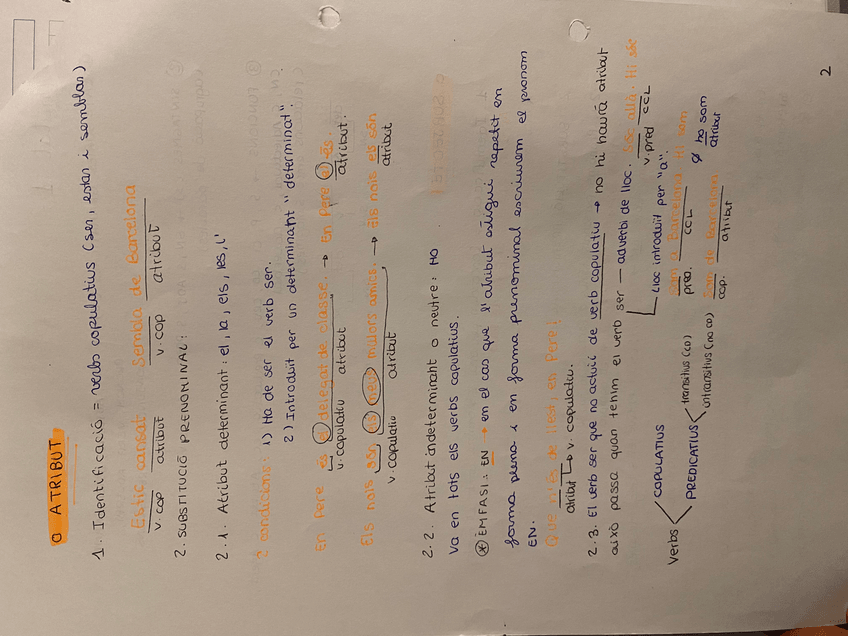 ATRIBUT
1. Identificació = verbs copulatius (ser, estar i semblar)
Estic cansat Sembla de Barcelona
v. cop atribut v. cop atribut
2. SUBSTITUCIÓ PRENOMINAL:
2.1. Atribut determinant: el, la, els, les, l'
2 condicions: 1) Ha de ser el verb ser.
2) Introduït per un determinant "determinat".
En Pere és el delegat de classe. → En Pere el és.
v. copulatiu atribut atribut.
Els nois són els meus millors amics. → Els nois els són
v. copulatiu atribut atribut
2.2. Atribut indeterminant o neutre: HO
Va en tots els verbs copulatius.
* ÈMFASI: EN → en el cas que l'atribut estigui repetit en
forma plena i en forma prenominal escriurem el pronom
EN.
Que n'és de llest, en Pere!
atribut v. copulatiu.
2.3. El verb ser que no actuï de verb copulatiu → no hi haurà atribut
això passa quan tenim el verb ser — adverbi de lloc. Sóc allà. Hi sóc
v. pred CCL
Lloc introduït per "a".
Som a Barcelona. Hi som
pred. CCL
Som de Barcelona ho som
cop. atribut atribut
Verbs
COPULATIUS
PREDICATIUS
transitius (CD)
intransitius (no CD)
2